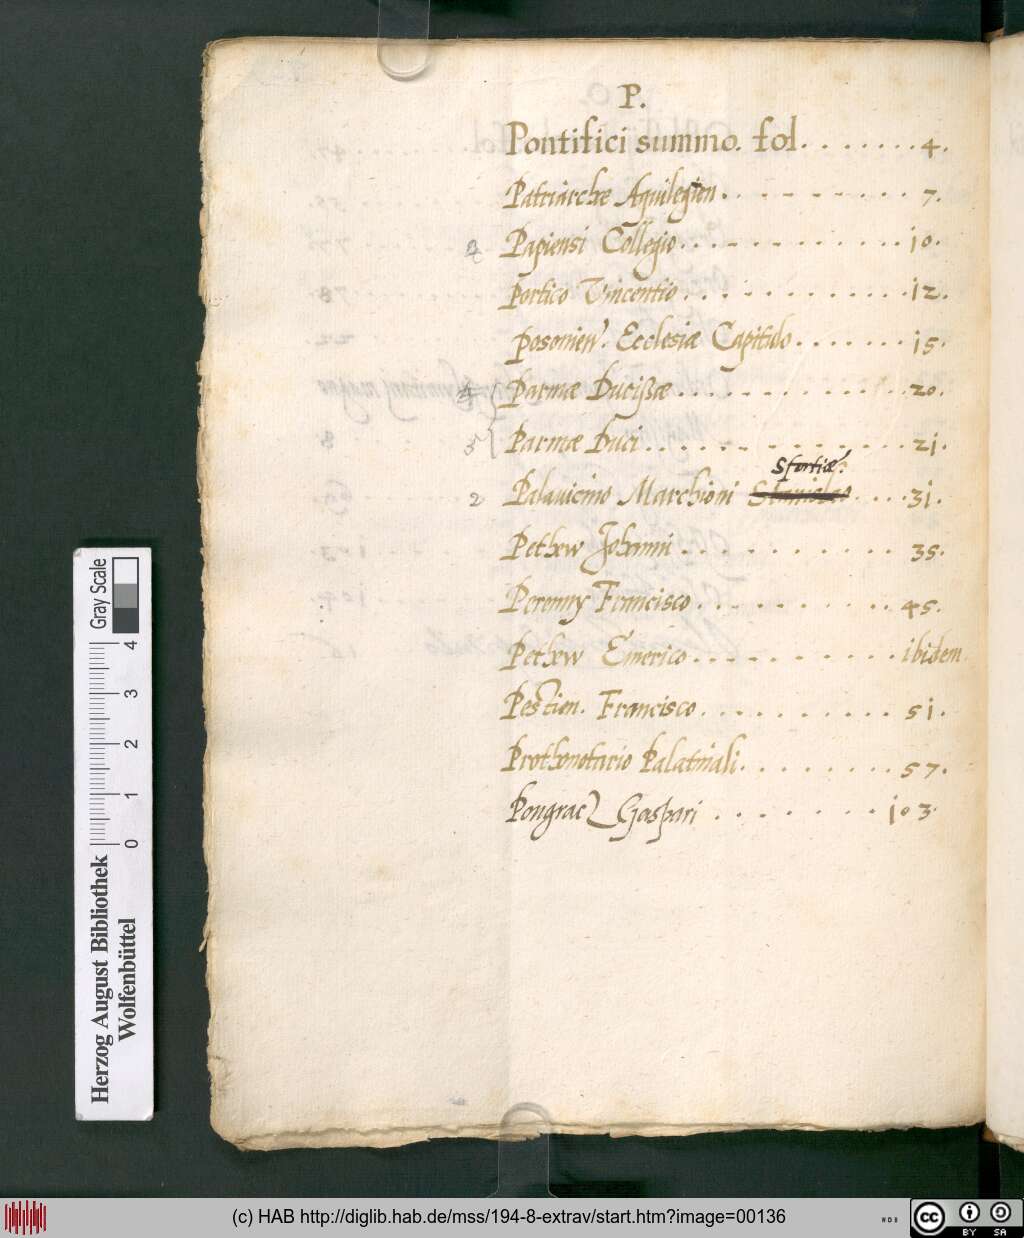 P.
Pontifici summo. fol. . . . . . . 4.
Patriarchæ Aquilegien . . . . . . . . 7.
Papiensi Collegio . . . . . . . . . . . 10.
Portico Vincentio . . . . . . . . . . 12.
Posonien. Ecclesiæ Capitulo . . . . . . . 15.
Parmæ Ducißæ . . . . . . . . . . . 20.
5 Parmæ Duci . . . . . . . . . . . 21.
Sfortiæ.
2 Palauicino Marchioni . . . . 31.
Pethew Johanni . . . . . . . . . . 35.
Perenny Francisco . . . . . . . . . . 45.
Pethew Emerico . . . . . . . . . . ibidem.
Pestien. Francisco . . . . . . . . . . 51.
Prothonotario Palatinali . . . . . . . . 57.
Pongracz Gaspari . . . . . . . 103.
Gray Scale
0 1 2 3 4
Herzog August Bibliothek
Wolfenbüttel
(c) HAB http://diglib.hab.de/mss/194-8-extrav/start.htm?image=00136
WDB
cc BY SA